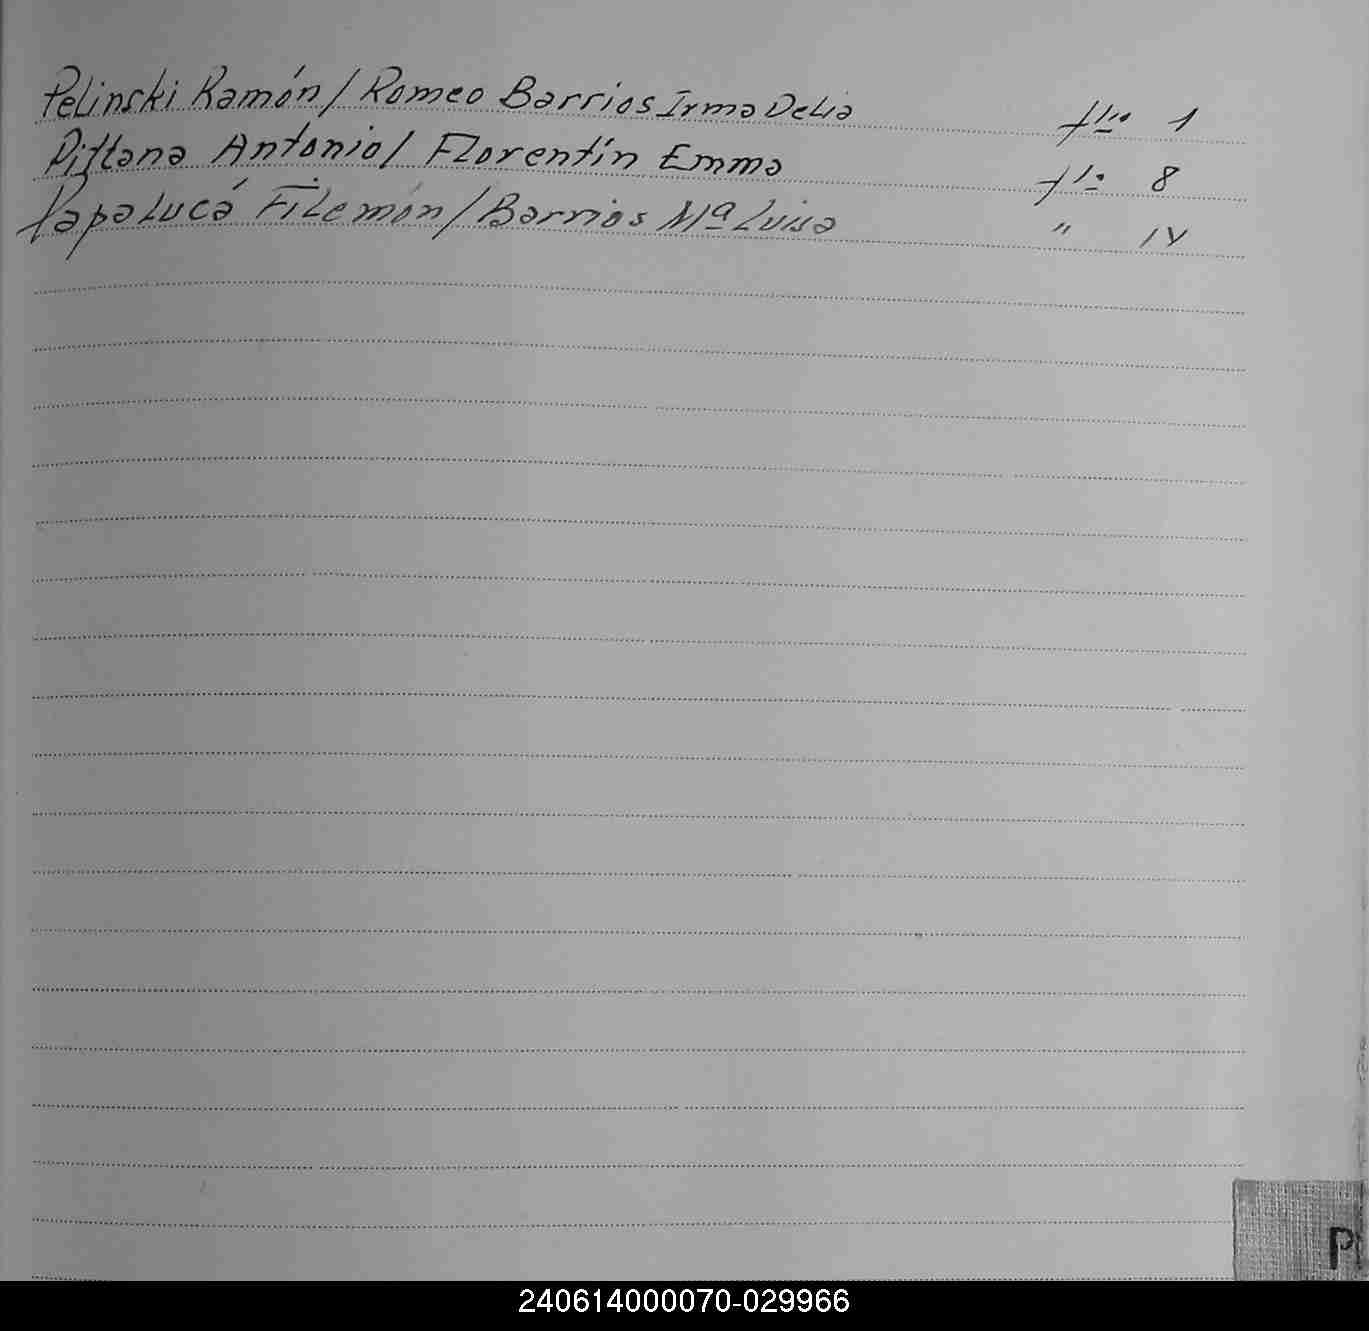 Pelinski Ramón/Romeo Barrios Irma Delia flio 1
Pittana Antonio/ Florentín Emma flio 8
Papalucá Filemón/Barrios Mª Luisa " 14
P
240614000070-029966